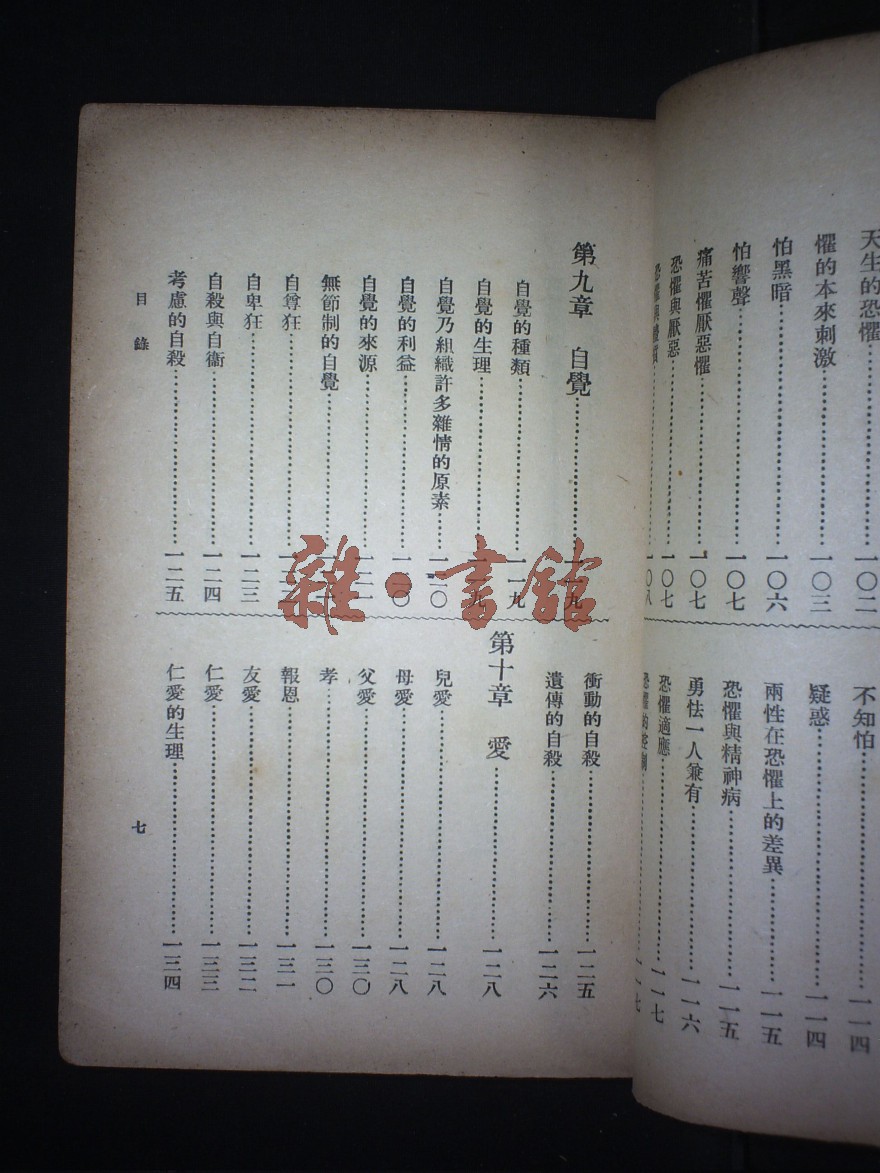 天生的恐懼……一〇二
懼的本來刺激……一〇三
怕黑暗……一〇六
怕響聲……一〇七
痛苦懼厭惡懼……一〇七
恐懼與厭惡……一〇七
不知怕……一一四
疑惑……一一四
兩性在恐懼上的差異……一一五
恐懼與精神病……一一五
勇怯一人兼有……一一六
恐懼適應……一一七
第九章 自覺……一一九
自覺的種類……一一九
自覺的生理……一一九
自覺乃組織許多雜情的原素……一二〇
自覺的利益……一二〇
自覺的來源……一二一
無節制的自覺
自尊狂
自卑狂……一二三
自殺與自衞……一二四
考慮的自殺……一二五
衝動的自殺……一二五
遺傳的自殺……一二六
第十章 愛……一二八
兒愛……一二八
母愛……一二八
父愛……一三〇
孝……一三〇
報恩……一三一
友愛……一三二
仁愛……一三三
仁愛的生理……一三四
目錄
七
雜·書館